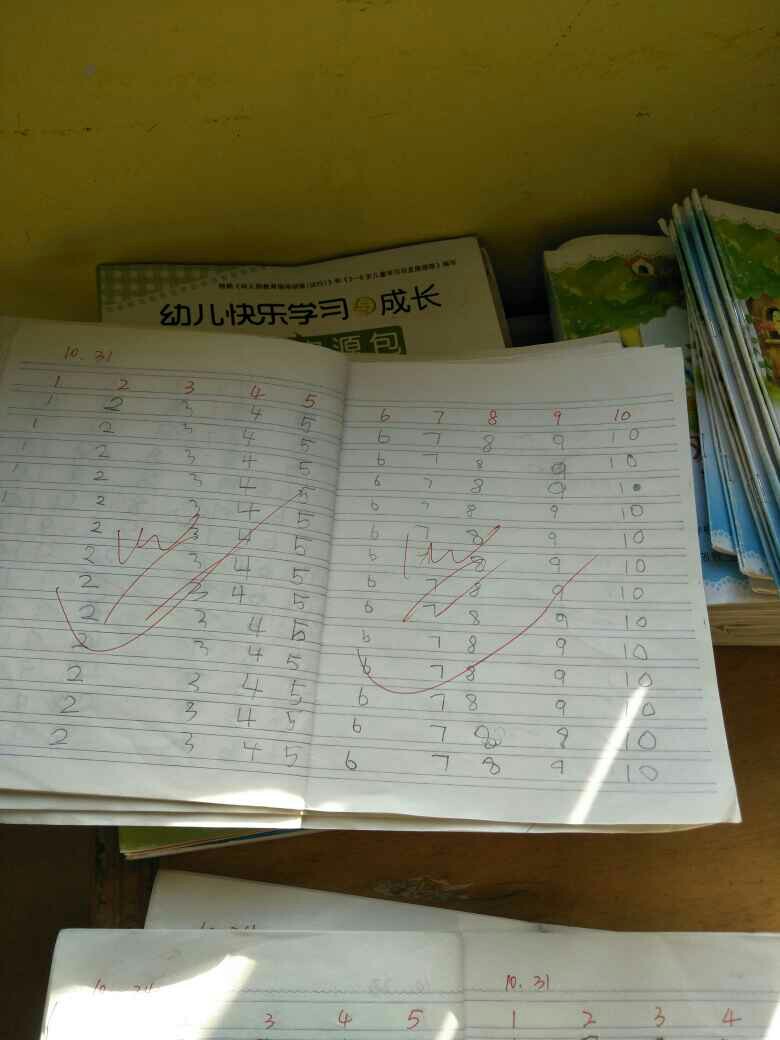 幼儿快乐学习与成长
源包
10.31
1 2 3 4 5
1 2 3 4 5
1 2 3 4 5
1 2 3 4 5
1 2 3 4 5
2 3 4 5
2 3 4 5
2 3 4 5
2 3 4 5
2 3 4 5
2 3 4 5
2 3 4 5
2 3 4 5
2 3 4 5
6 7 8 9 10
6 7 8 9 10
6 7 8 9 10
6 7 8 9 10
6 7 8 9 10
6 7 8 9 10
6 8 9 10
6 7 8 9 10
6 7 8 9 10
6 7 8 9 10
6 7 8 9 10
6 7 8 9 10
6 7 8 8 10
6 7 8 9 10
3 4 5
10.31
1 2 3 4